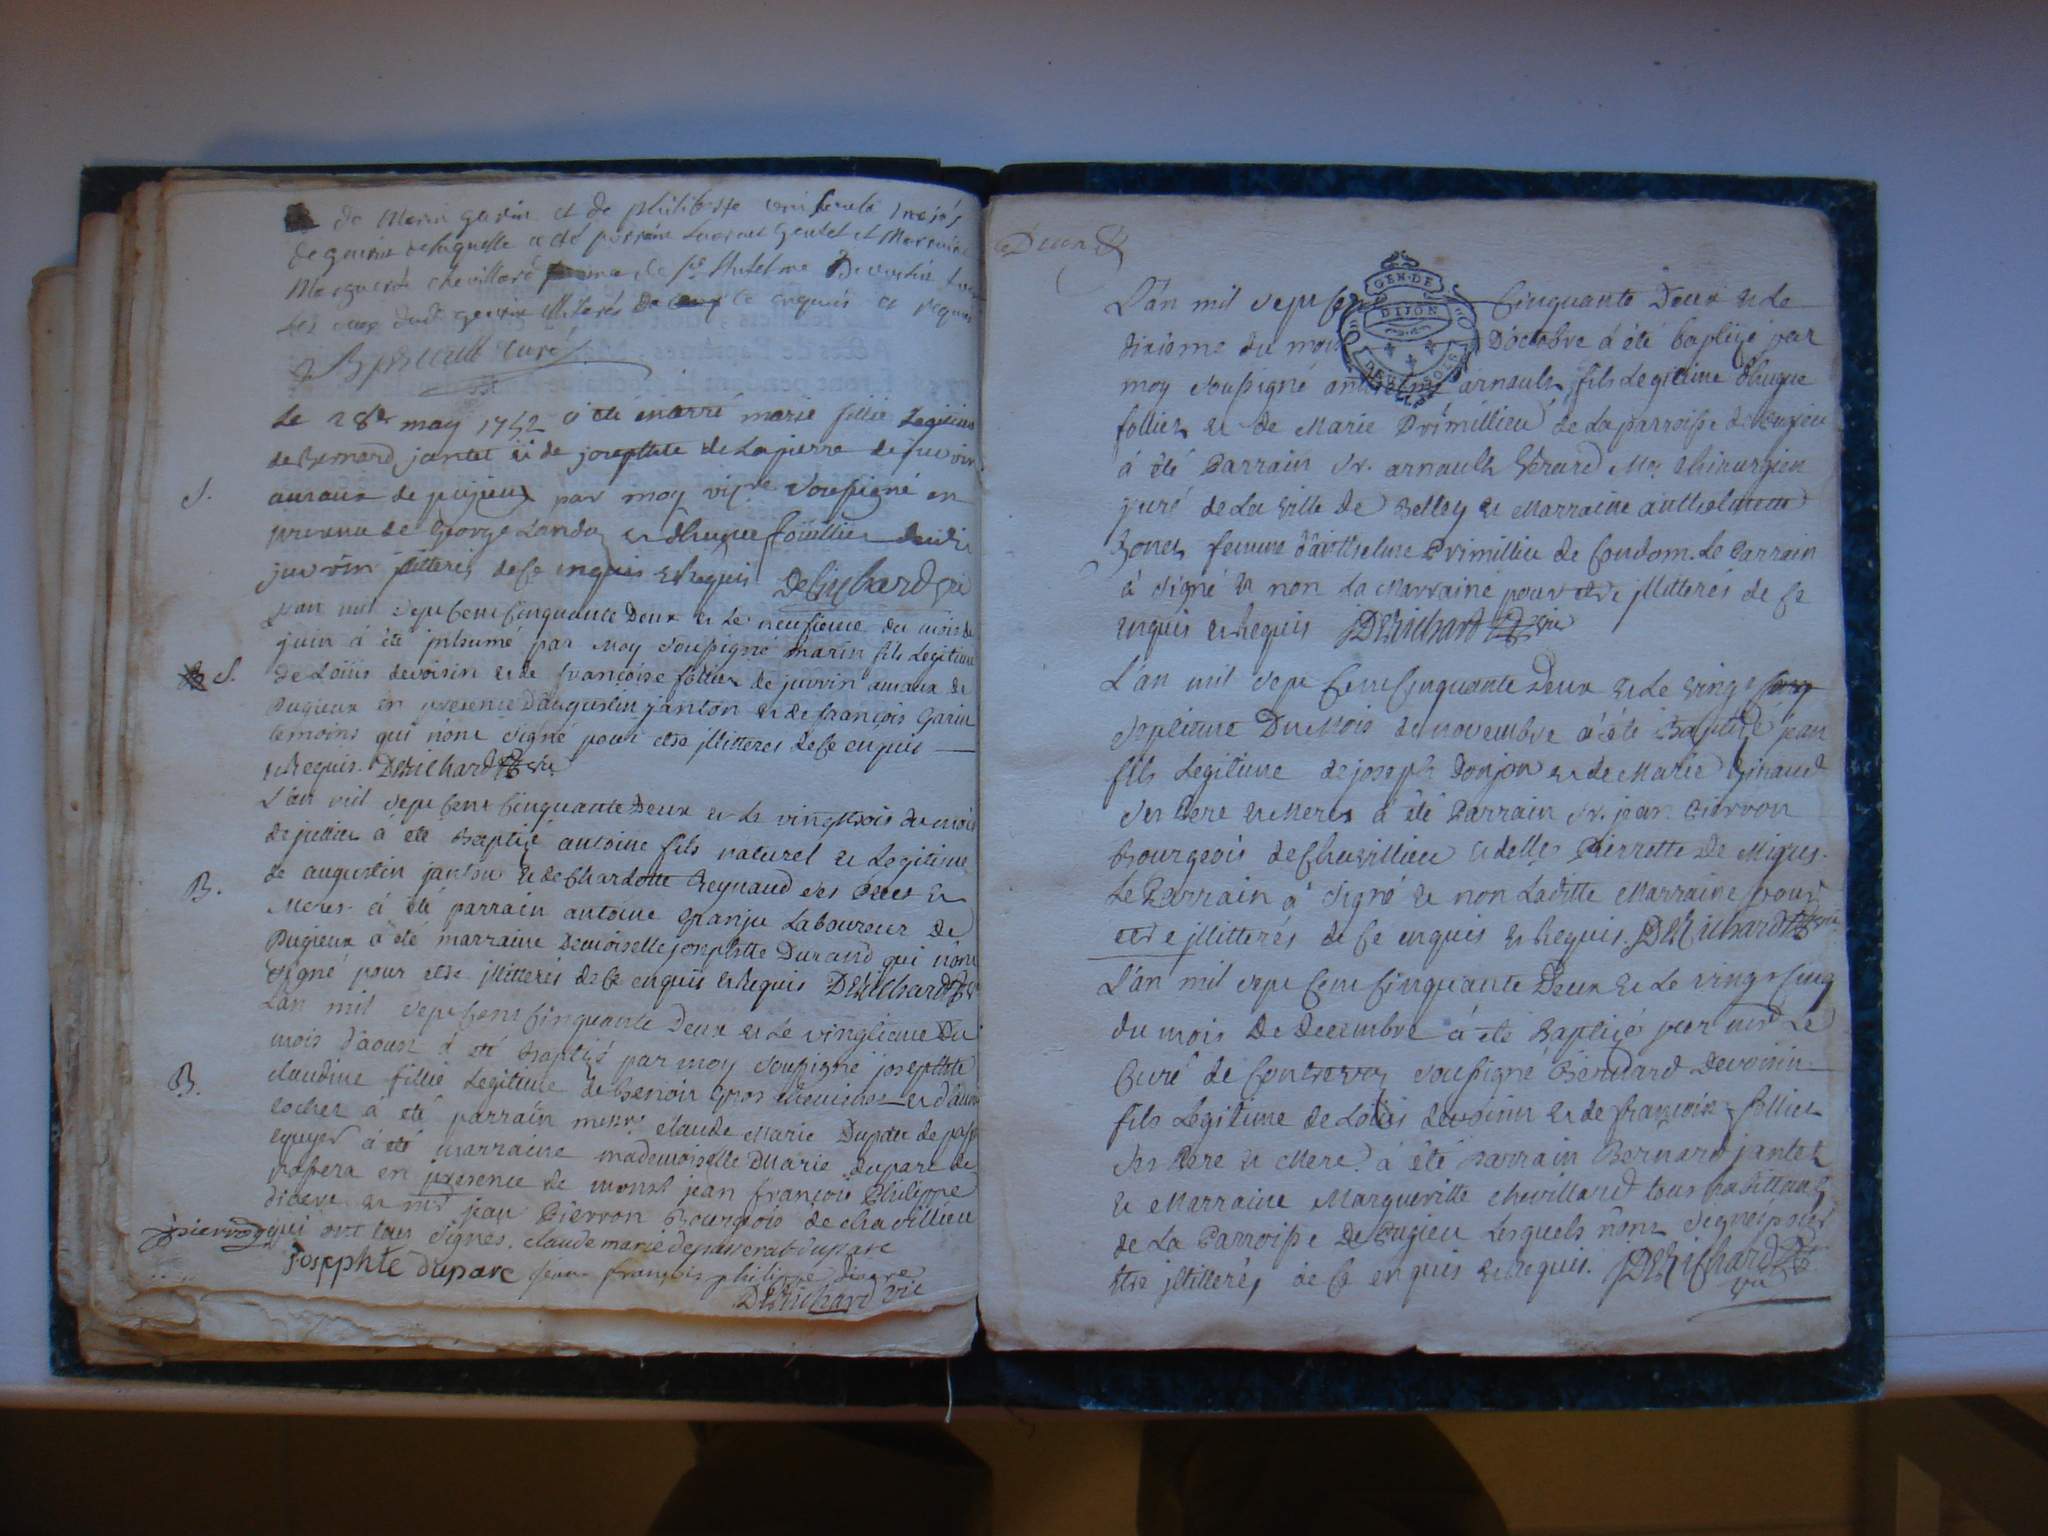 de Marin garin et de philiberte
de gevrin de laquelle a été parrain Laurent Gentet et Marraine
Marguerite chevillard femme de Devoisin
illiterés de ce enquis et requis
curé
Le 28e may 1752 a été enterré marie fillie Legitime
de Bernard jantet et de josephte de Lapierre de juvrin
S.
auraux de pugieux par moy vicre soussigné en
presence de George Landoz et d'hugue foillier dudit
juvrin illitterés de ce enquis et requis DeRichard vic
L'an mil sept cent cinquante Deux et Le neufieme du mois de
juin à été inhumé par Moy soussigné marin fils Legitime
S.
de Loüis devoisin et de françoise follier de juvrin auraux de
Pugieux en presence D'augustin janton et de françois Garin
temoins qui n'ont signé pour etre illitteres de ce enquis
et requis. DeRichard vic
L'an mil sept cent cinquante Deux et le vingt trois du mois
de juillier à été Baptizé antoine fils naturel et Legitime
de augustin janton et de Chardotte Reynaud ses Peres et
B.
Meres à été parrain antoine granju Laboureur de
Pugieux à été marraine Demoiselle josephtte Durand qui n'ont
signé pour etre illitterés de ce enquis et requis DeRichard vic
L'an mil sept cent cinquante Deux et Le vingtieme Du
mois d'aoust à été Baptizé par moy soussigné josephte
claudine fillie Legitime de Benoit Gros
B.
à été parrain messre claude Marie Duparc de
ecuyer à été marraine mademoiselle Marie duparc de
en presence de monsr jean françois Philippe
et mr jean Pierron Bourgeois de chavillieu
jpierron
qui ont tous signés. claude marie depasserat duparc
Josephte duparc jean françois philippe
DeRichard vic
L'an mil sept cent cinquante Deux et Le
GEN. DE
DIJON
dixieme du mois D'octobre à été baptizé par
moy soussigné arnault, fils Legitime d'hugue
follier et de Marie Primillieu de La parroisse de Pugieu
à été Parrain Sr. arnault Gerard Me. chirurgien
juré de La ville de Belley et Marraine anthelmette
Bonet femme d'anthelme Primillieu de Condom. Le Parrain
à signé et non La Marraine pour etre jllitterés de ce
enquis et requis DeRichard vic
L'an mil sept cent cinquante Deux et Le vingt
septieme Du Mois de novembre à été Baptizé jean
fils Legitime de joseph Donjon et de Marie Ginaud
ses Pere et Meres à été Parrain Sr. jean Pierron
Bourgeois de Chavillieu et delle Pierrette De Migus.
Le Parrain à signé et non Laditte Marraine pour
etre jllitterés de ce enquis et requis. DeRichard vic
L'an mil sept cent cinquante Deux et Le vingt cinq
du mois De Decembre à été Baptizé par Le
Curé de soussigné Bernard Devoisin
fils Legitime de Loüis devoisin et de françoise follier
ses Pere et Mere. à été Parrain Bernard jantet
et Marraine Margueritte chevilland tous habittants
de La Parroisse De Pugieu Lesquels n'ont signé pour
etre jllitterés de ce enquis et requis. DeRichard
vic